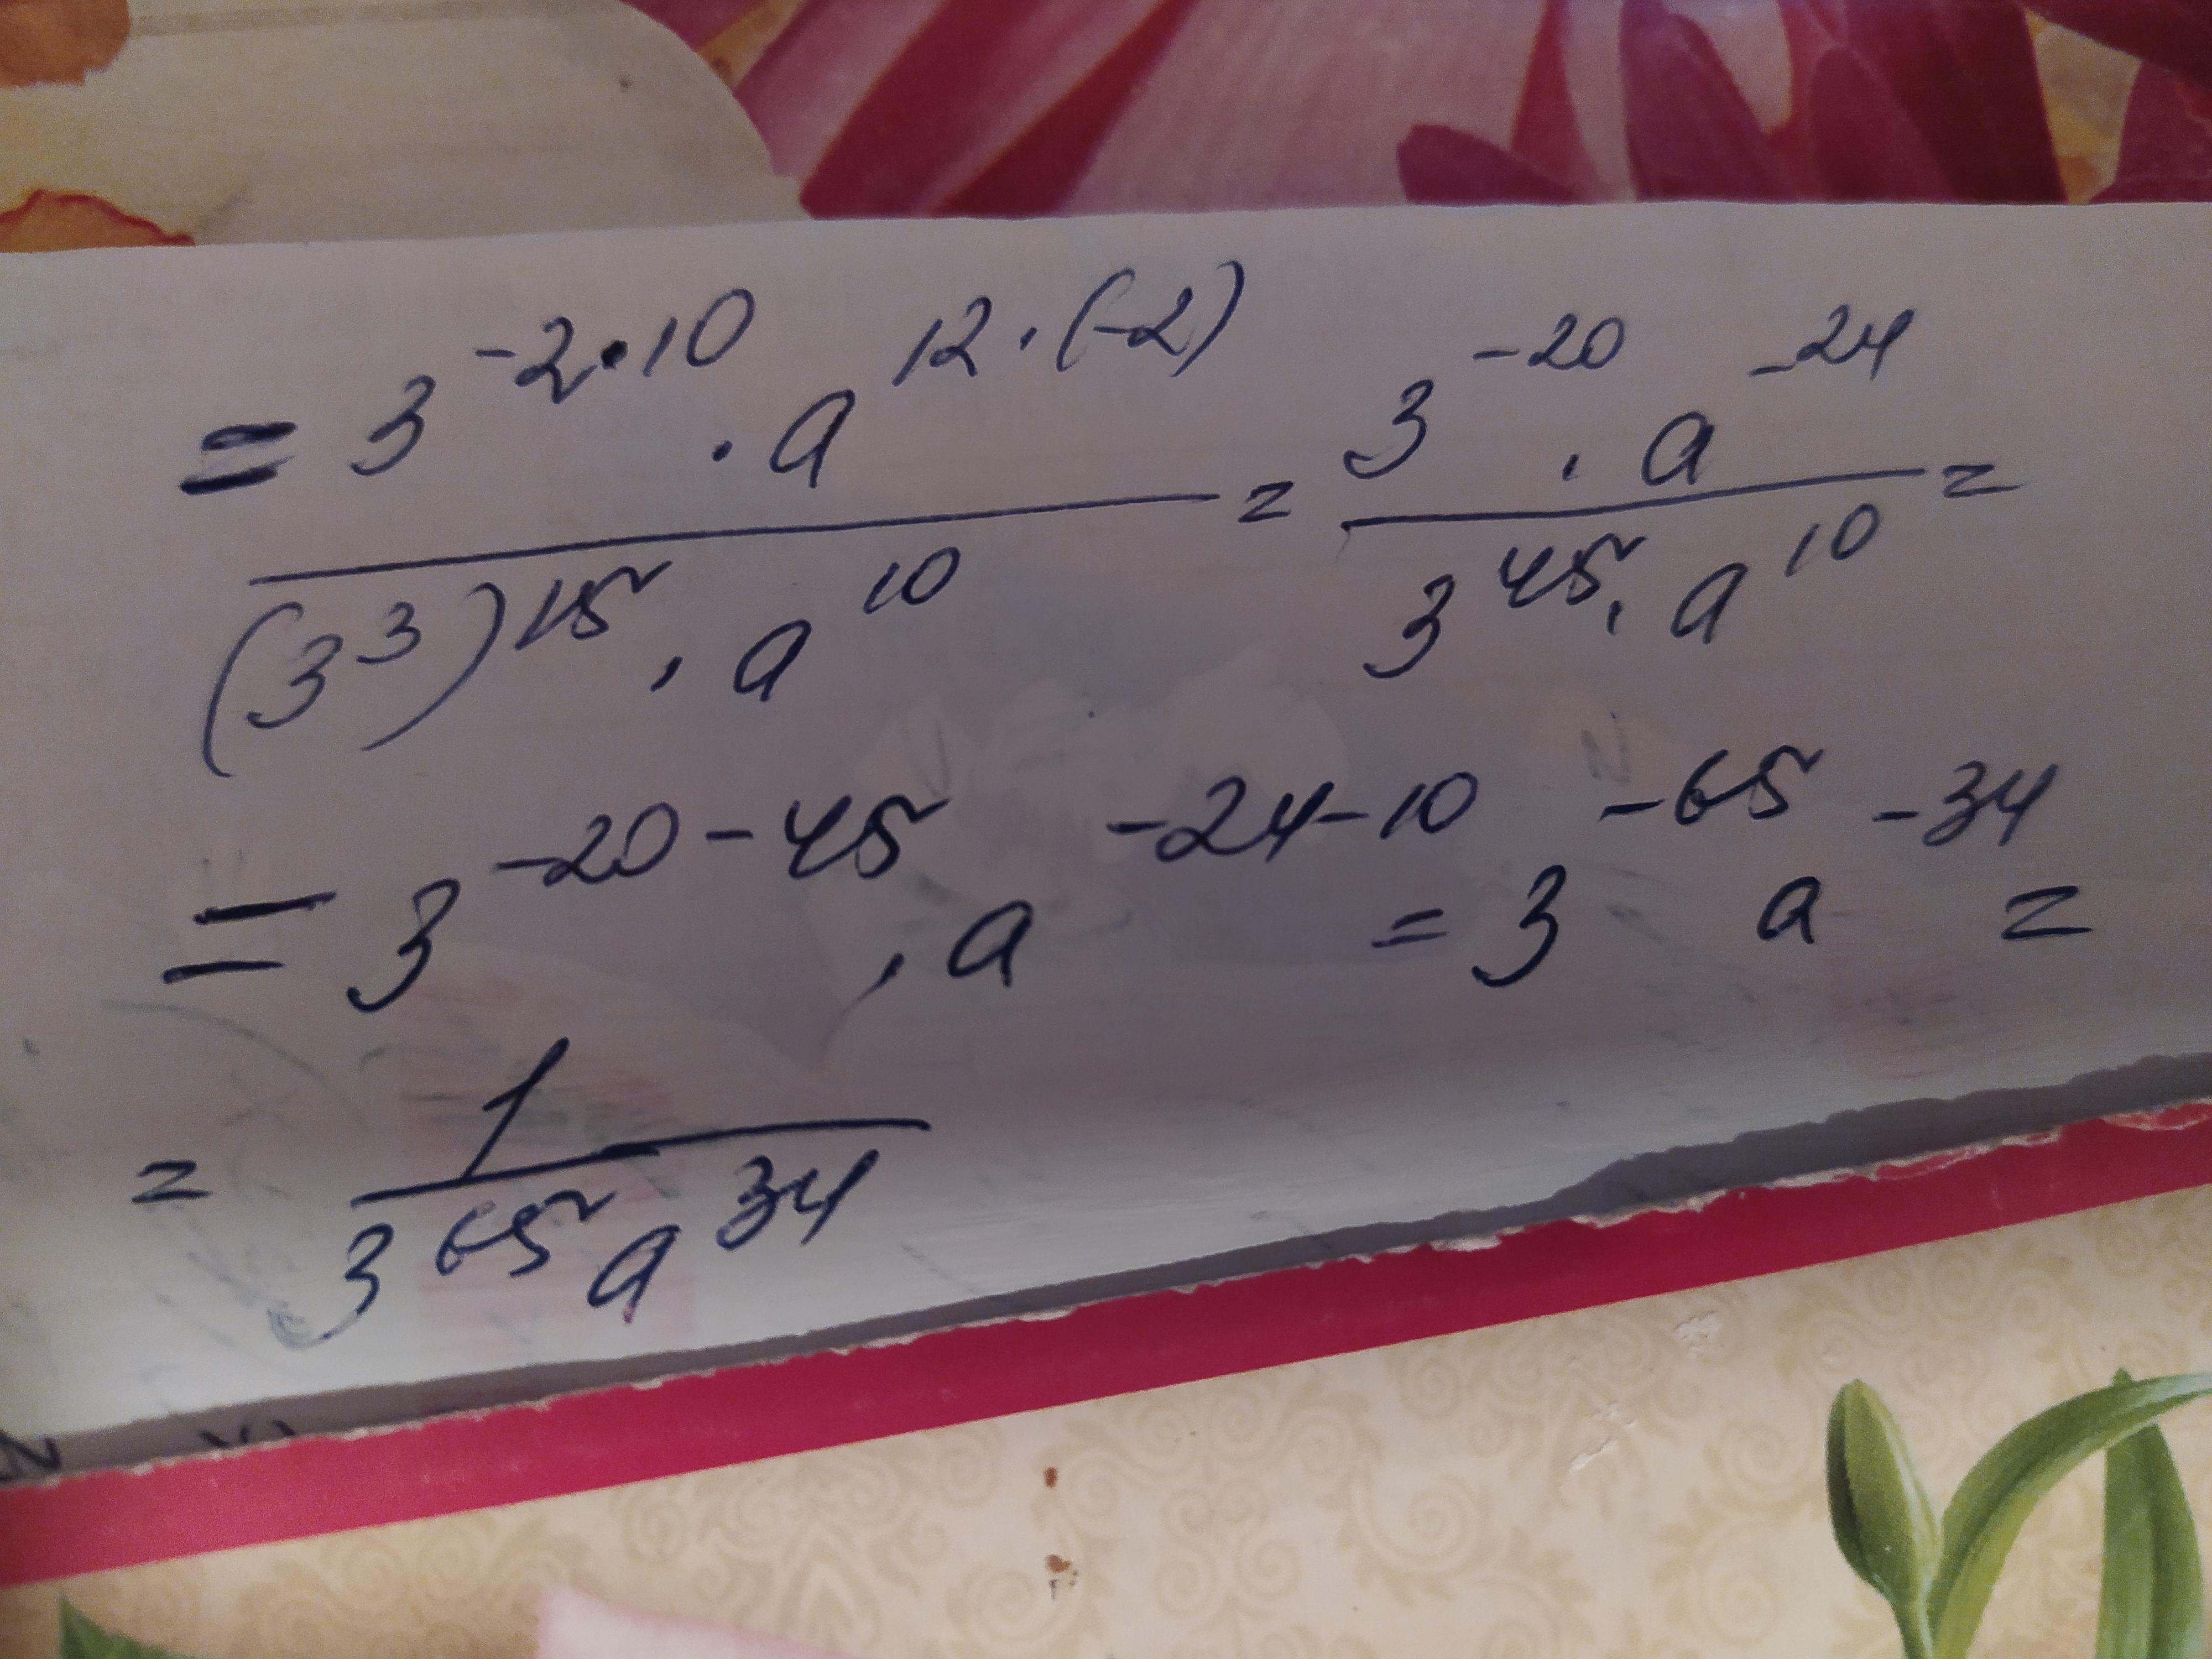 = 3^{-2·10} · a^{12·(-2)} / (3^3)^{15} · a^{10} = 3^{-20} · a^{-24} / 3^{45} · a^{10} =
= 3^{-20-45} · a^{-24-10} = 3^{-65} a^{-34} =
= 1 / 3^{65} a^{34}